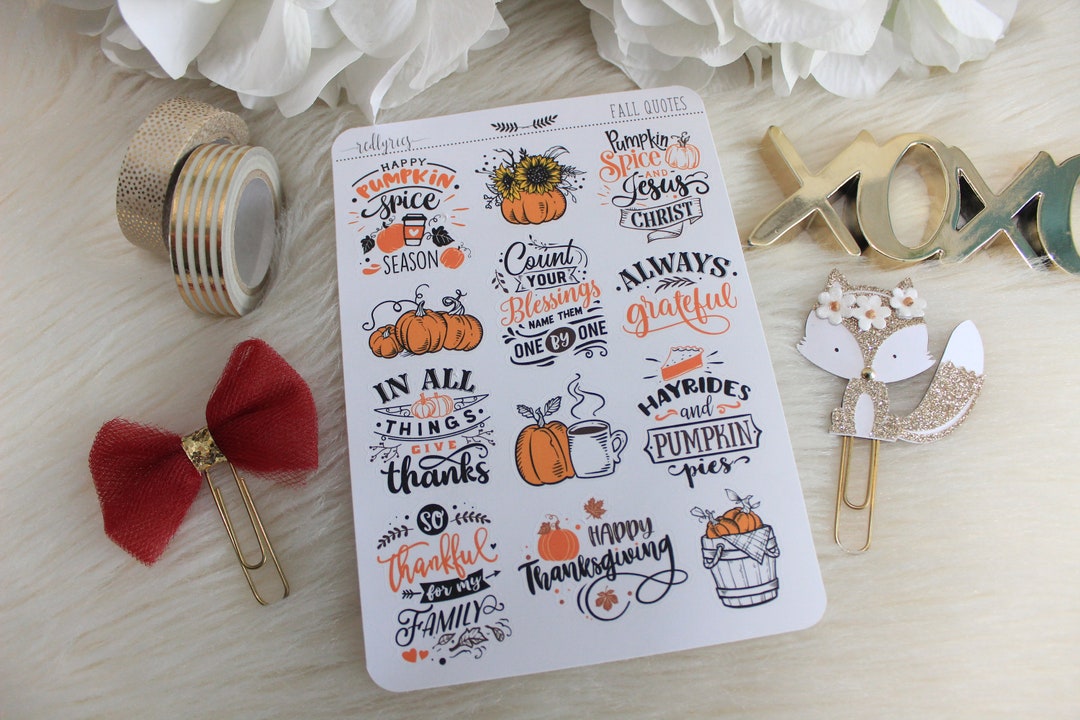 redlyrics
FALL QUOTES
HAPPY
PUMPKIN
spice
SEASON
Pumpkin
Spice AND
Jesus
CHRIST
Count
YOUR
Blessings
NAME THEM
ONE BY ONE
ALWAYS
grateful
IN ALL
THINGS
GIVE
thanks
HAYRIDES
and
PUMPKIN
pies
SO
Thankful
for my
FAMILY
HAPPY
Thanksgiving
XOXO